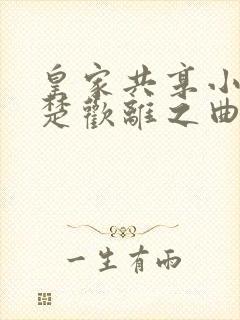 皇家共享小
楚歡離之曲
一生有兩